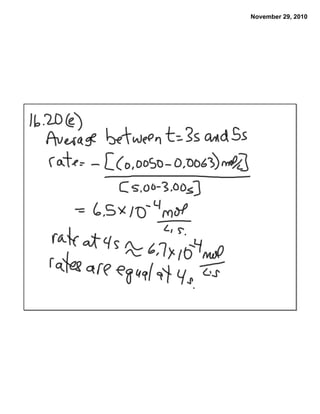 November 29, 2010
16.20(e)
Average between t=3s and 5s
rate= -[(0.0050-0.0063)mol/L]
[5.00-3.00s]
= 6.5×10⁻⁴ mol
L.s.
rate at 4s ≈ 6.7×10⁻⁴ mol
L.s
rates are equal at 4s.